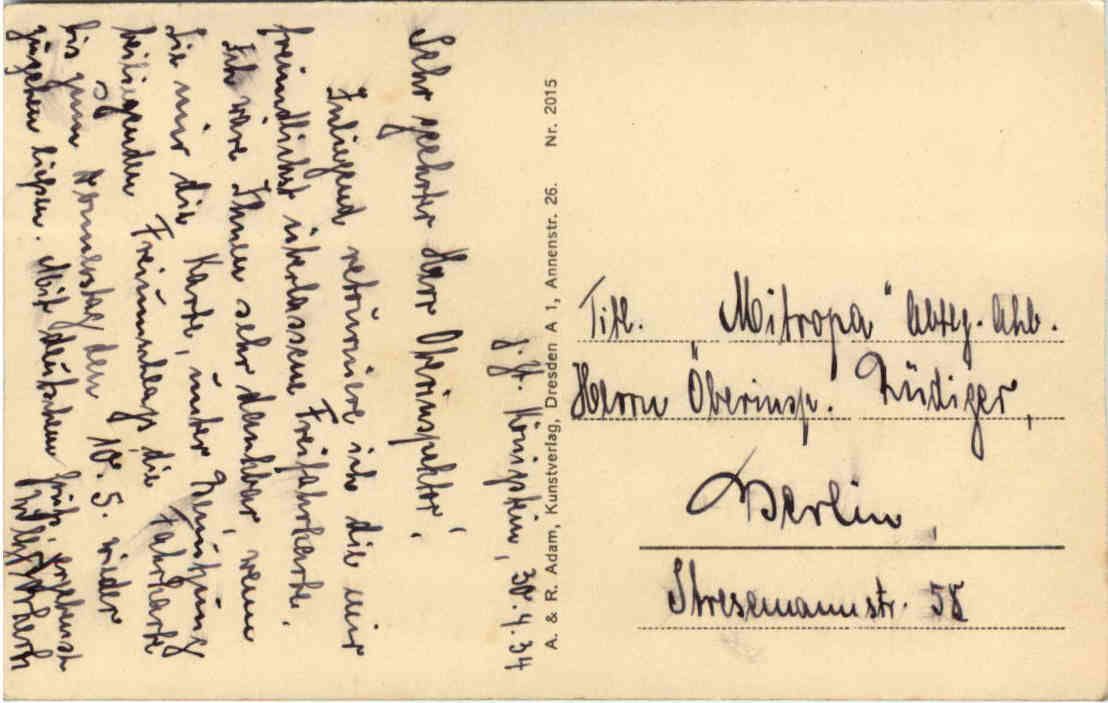 z. Zt. Königstein, 30.4.34
Sehr geehrter Herr Oberinspektor!
Inliegend retourniere ich die mir
freundlichst überlassene Freifahrkarte.
Ich wäre Ihnen sehr dankbar, wenn
Sie mir die Karte, unter Benützung
beiliegenden Freiumschlags, die Fahrkarte
bis zum Donnerstag den 10. 5. wieder
zugehen ließen. Mit deutschem Gruß ergebenst
A. & R. Adam, Kunstverlag, Dresden A 1, Annenstr. 26. Nr. 2015
Titl. "Mitropa" Abtlg.
Herrn Oberinsp. Rüdiger,
Berlin,
Stresemannstr. 58